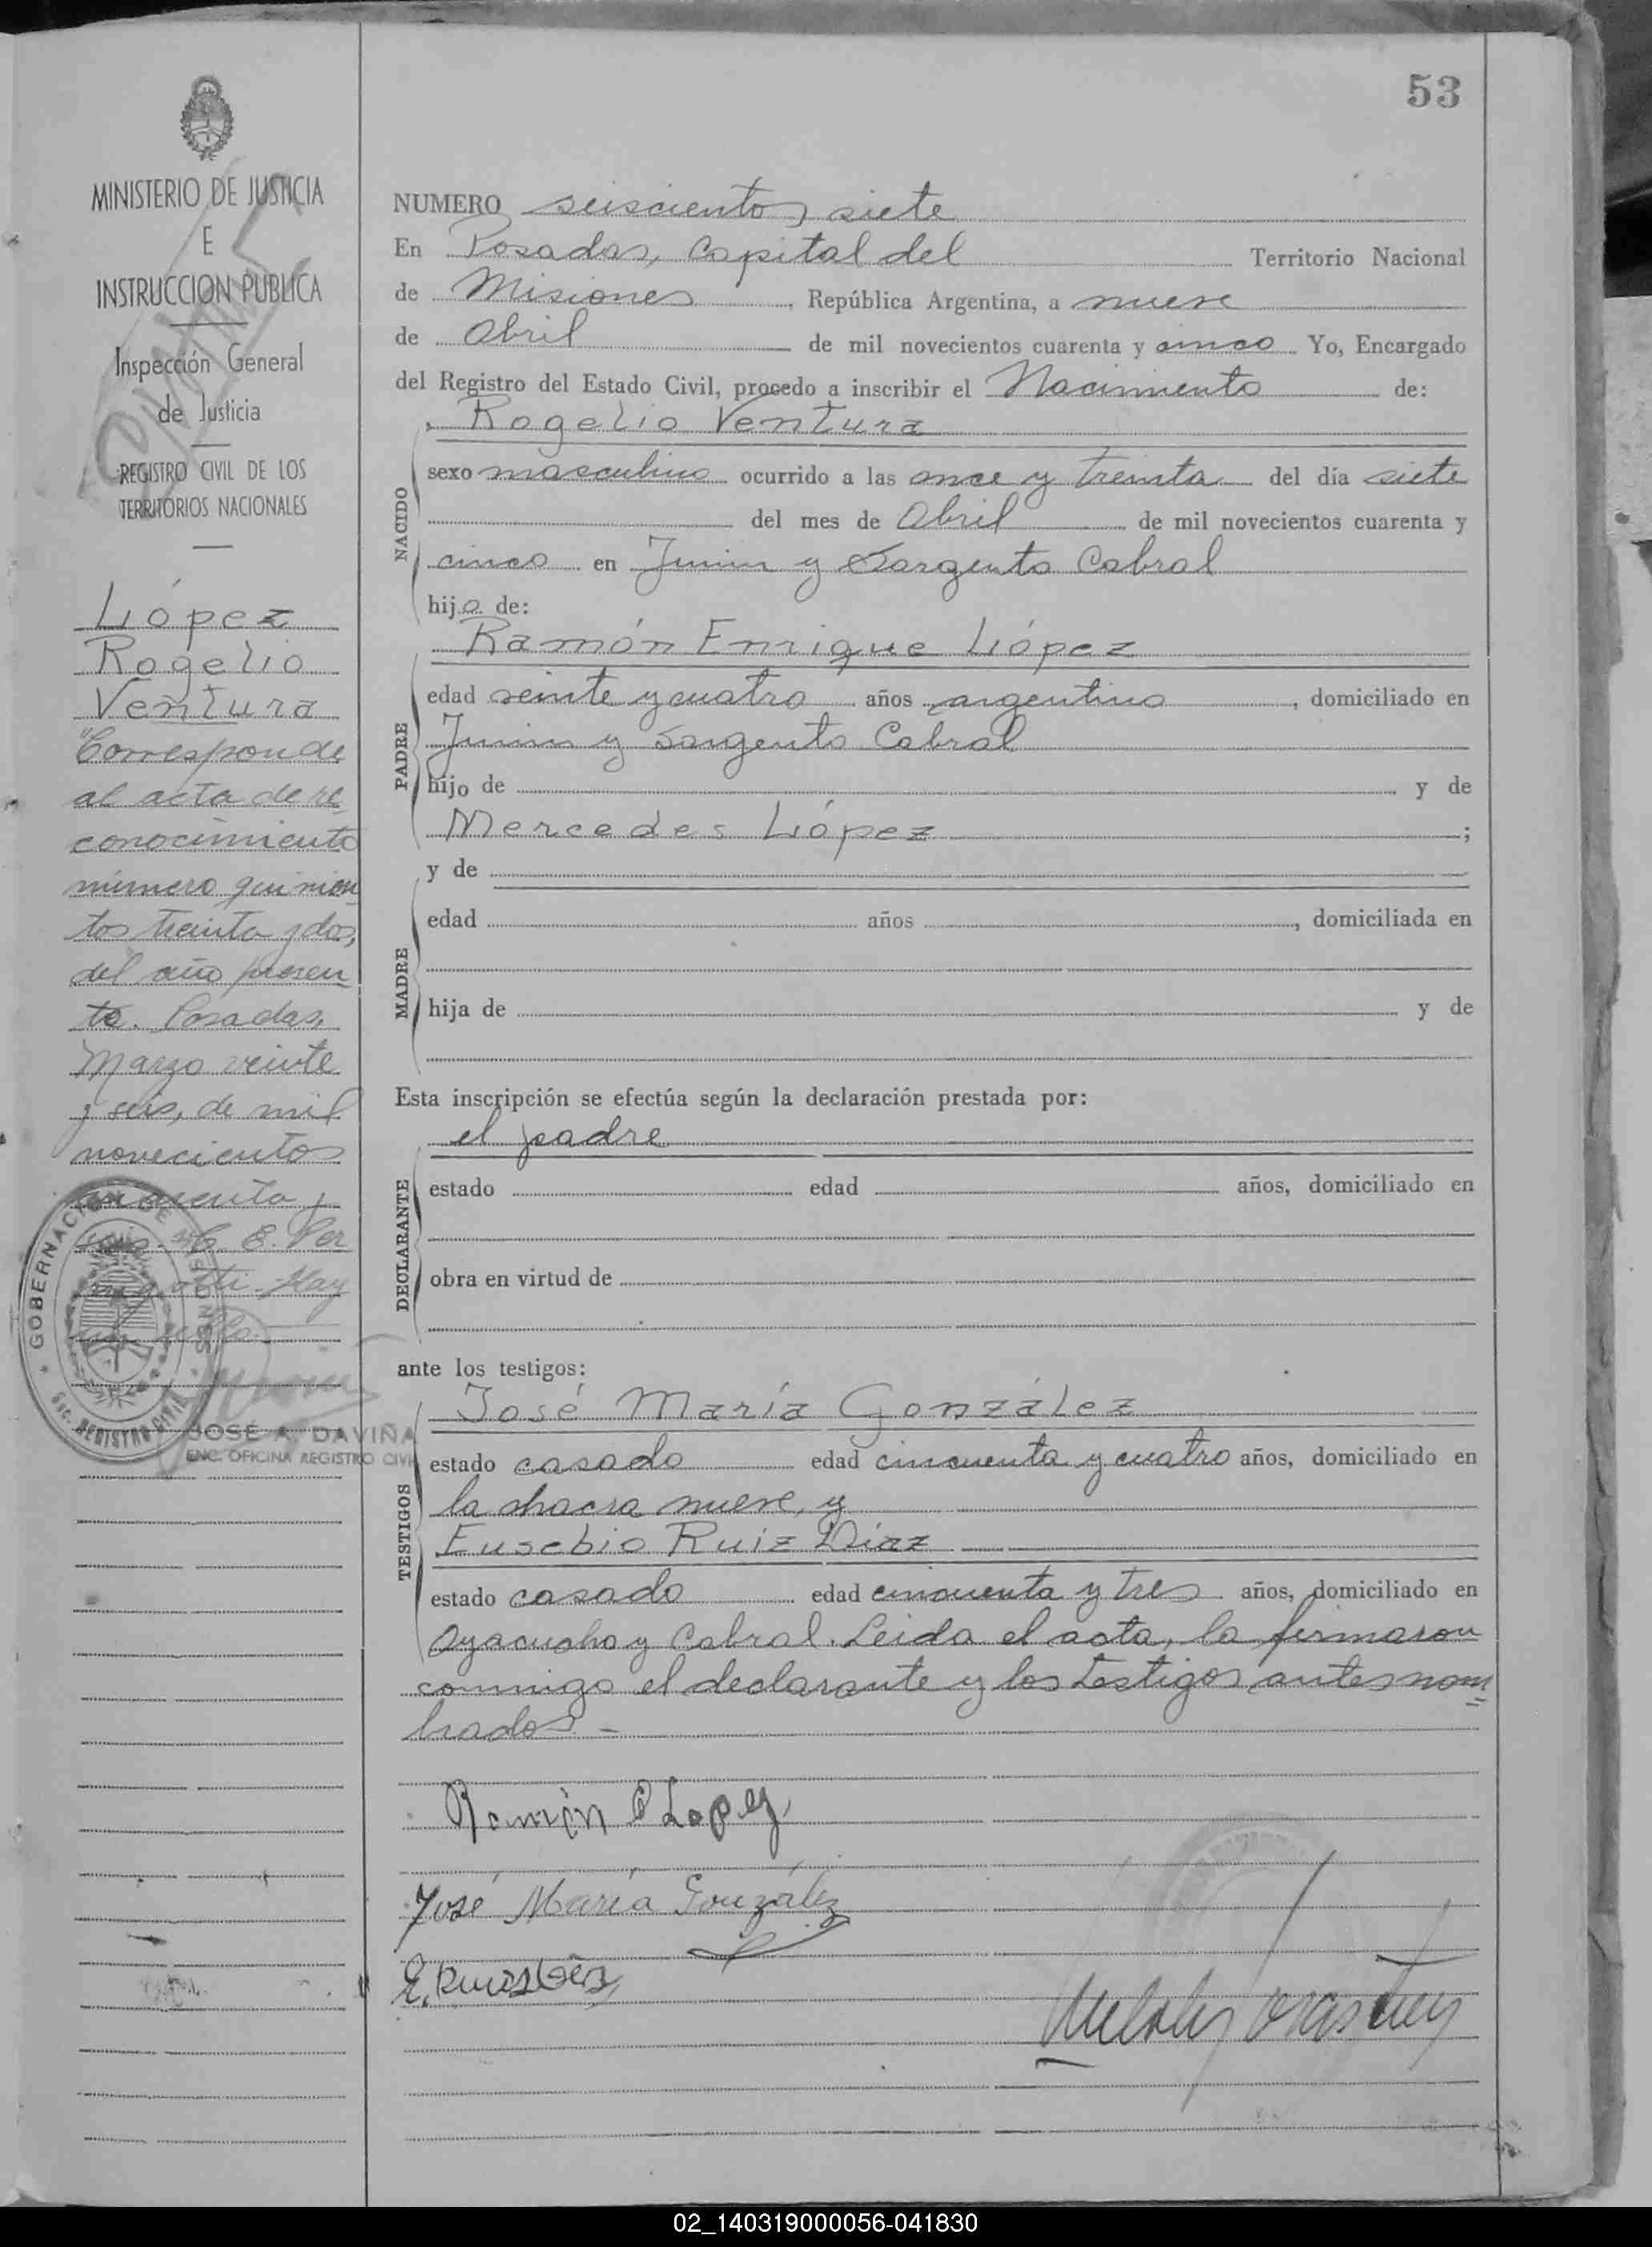 53
MINISTERIO DE JUSTICIA
E
INSTRUCCION PUBLICA
Inspección General
de Justicia
REGISTRO CIVIL DE LOS
TERRITORIOS NACIONALES
López
Rogelio
Ventura
"Corresponde
al acta de re
conocimiento
número quinien
tos treinta y dos,
del año presen
te. Posadas,
Marzo veinte
y seis, de mil
novecientos
cuarenta y
seis. E. Per
Hay
GOBERNACION DE MISIONES
REGISTRO CIVIL
JOSÉ A. DAVIÑA
ENC. OFICINA REGISTRO CIVIL
NUMERO seiscientos siete
En Posadas, Capital del Territorio Nacional
de Misiones, República Argentina, a nueve
de Abril de mil novecientos cuarenta y cinco Yo, Encargado
del Registro del Estado Civil, procedo a inscribir el Nacimiento de:
Rogelio Ventura
NACIDO
sexo masculino ocurrido a las once y treinta del día siete
del mes de Abril de mil novecientos cuarenta y
cinco en Junin y Sargento Cabral
hijo de:
Ramón Enrique López
PADRE
edad veinte y cuatro años argentino, domiciliado en
Junin y Sargento Cabral
hijo de y de
Mercedes López;
y de
MADRE
edad años, domiciliada en
hija de y de
Esta inscripción se efectúa según la declaración prestada por:
el padre
DECLARANTE
estado edad años, domiciliado en
obra en virtud de
ante los testigos:
José María González
TESTIGOS
estado casado edad cincuenta y cuatro años, domiciliado en
la chacra nueve, y
Eusebio Ruiz Díaz
estado casado edad cincuenta y tres años, domiciliado en
Ayacucho y Cabral. Leida el acta, la firmaron
conmigo el declarante y los testigos antes nom
brados.-
Ramón E Lopez
José María González
E. Ruiz Díaz
02_140319000056-041830